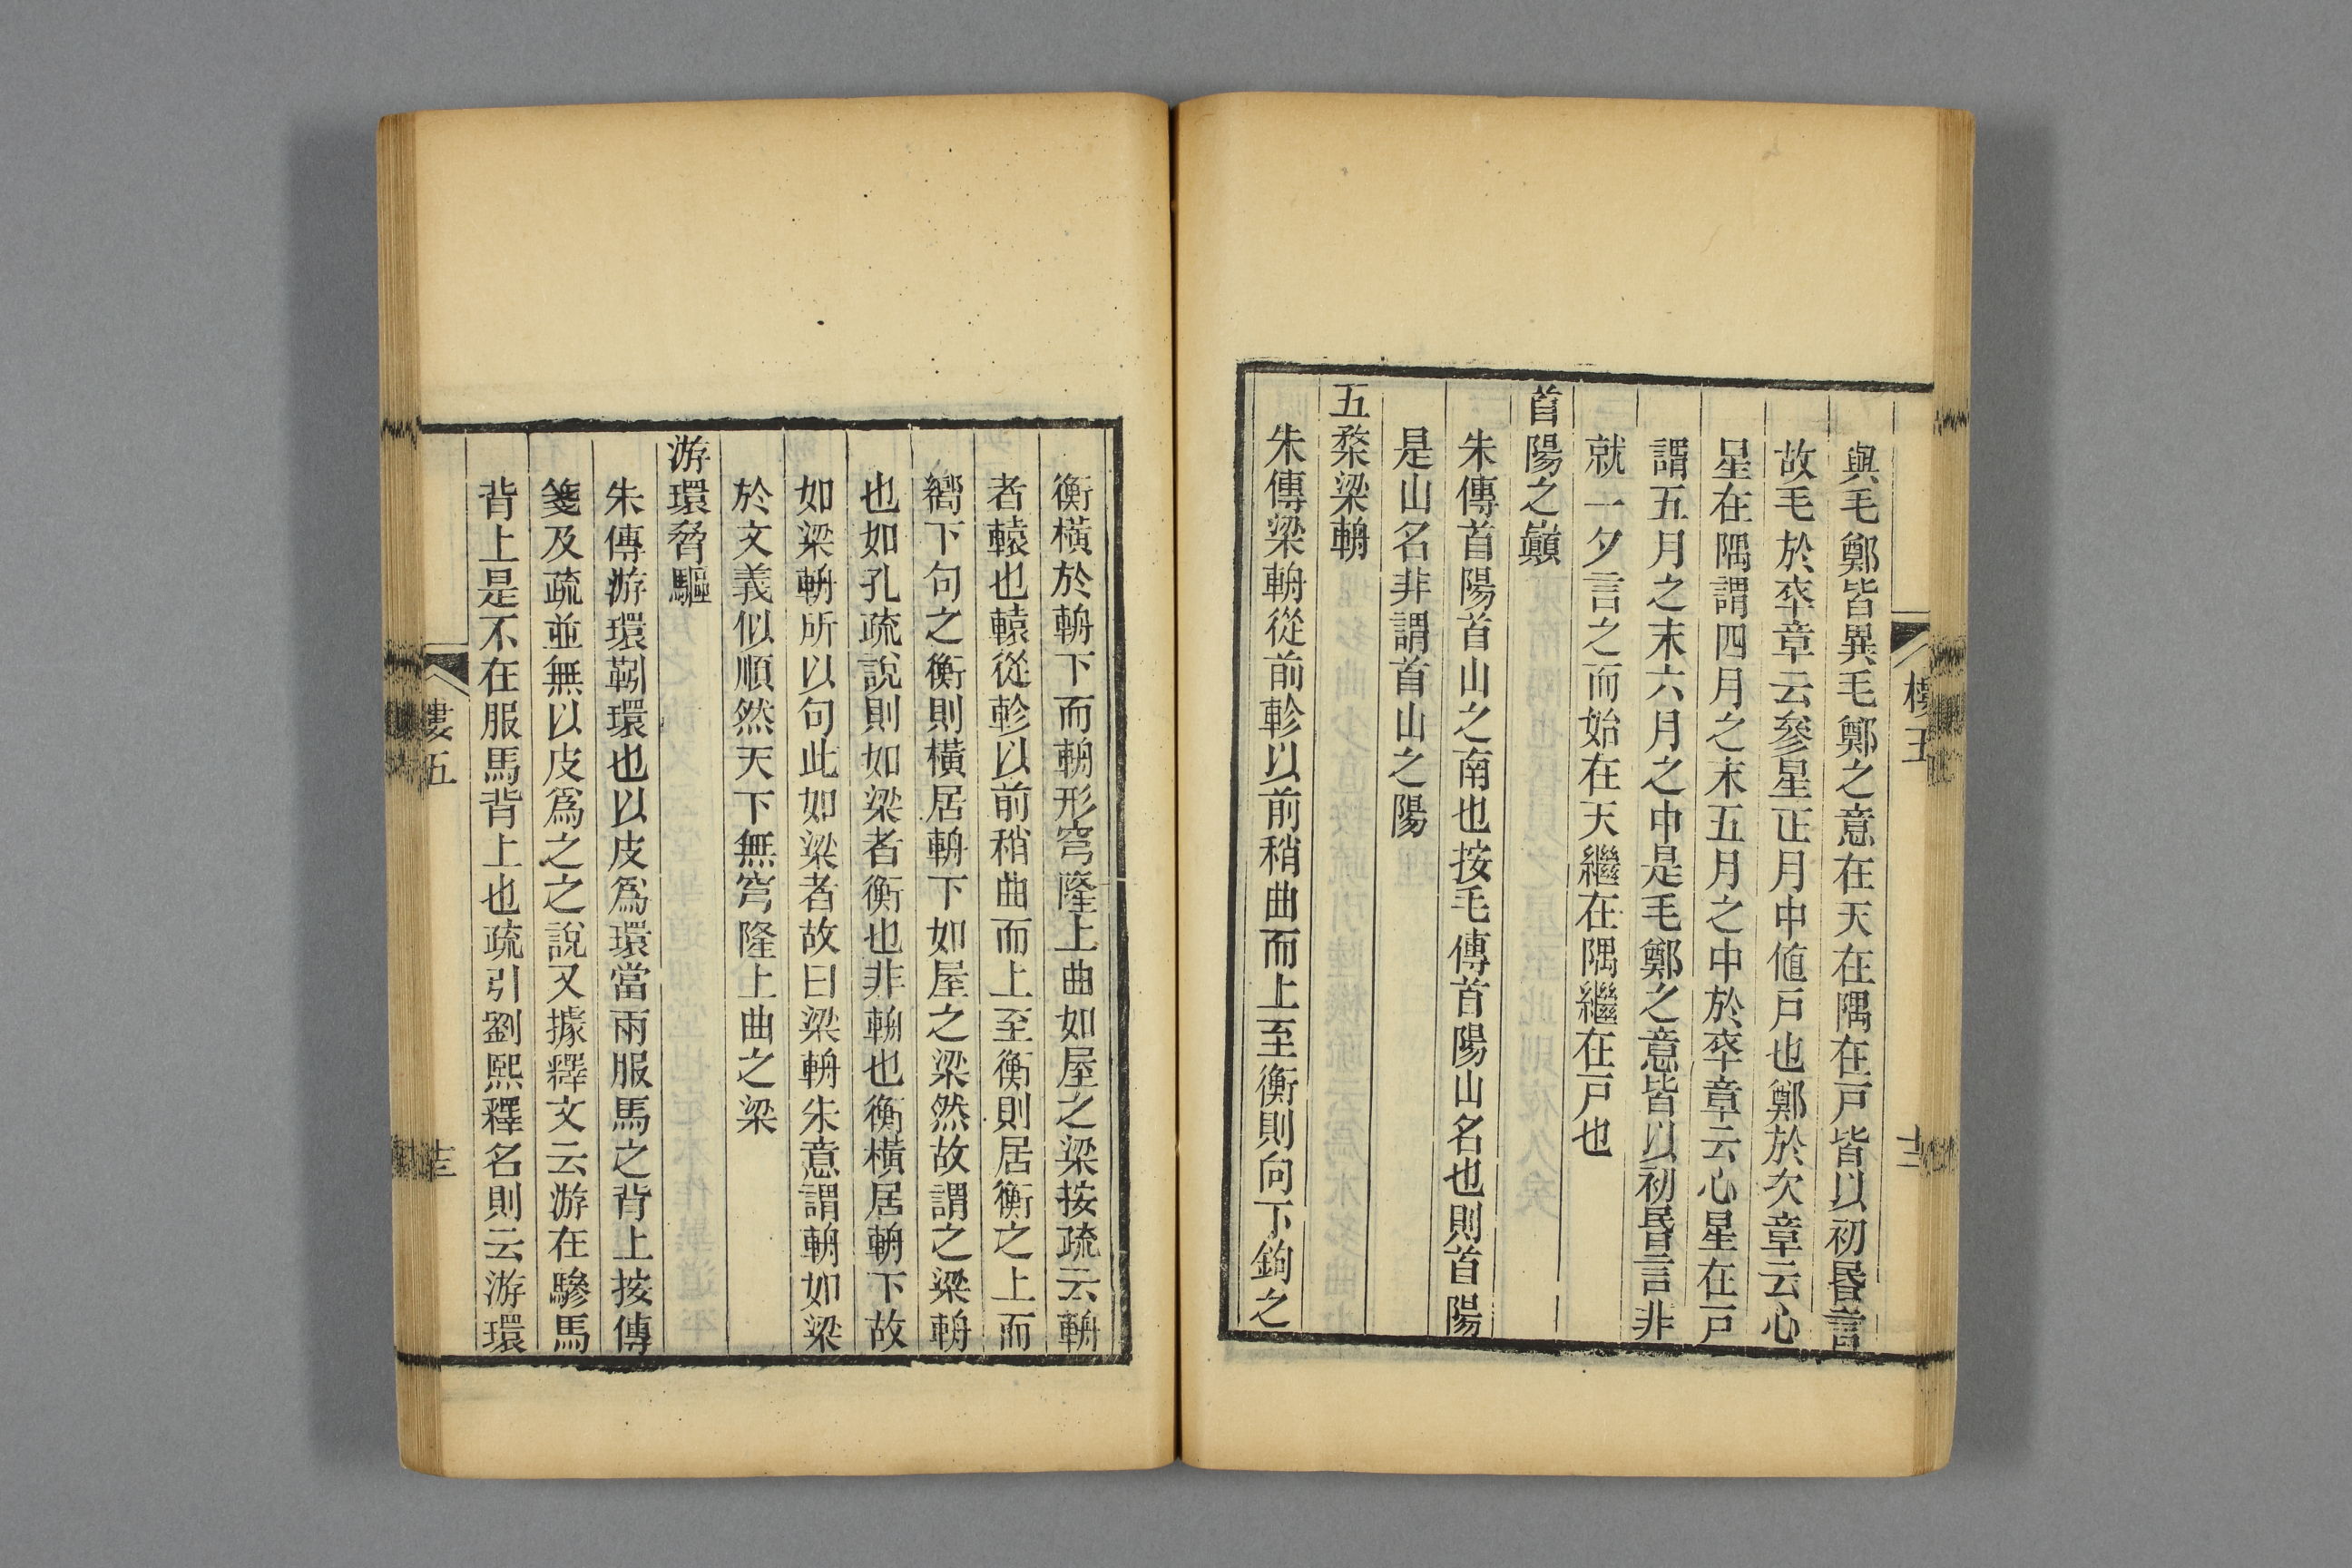 與毛鄭皆異毛鄭之意在天在隅在戸皆以初昬言
故毛於卒章云參星正月中値戸也鄭於次章云心
星在隅謂四月之末五月之中於卒章云心星在戸
謂五月之末六月之中是毛鄭之意皆以初昬言非
就一夕言之而始在天繼在隅繼在戸也
首陽之巔
朱傳首陽首山之南也按毛傳首陽山名也則首陽
是山名非謂首山之陽
五楘梁輈
朱傳梁輈從前軫以前稍曲而上至衡則向下鉤之
樓五
衡橫於輈下而輈形穹隆上曲如屋之梁按疏云輈
者轅也轅從軫以前稍曲而上至衡則居衡之上而
嚮下句之衡則橫居輈下如屋之梁然故謂之梁輈
也如孔疏說則如梁者衡也非輈也衡橫居輈下故
如梁輈所以句此如梁者故曰梁輈朱意謂輈如梁
於文義似順然天下無穹隆上曲之梁
游環脅驅
朱傳游環靷環也以皮爲環當兩服馬之背上按傳
箋及疏並無以皮爲之之說又據釋文云游在驂馬
背上是不在服馬背上也疏引劉熙釋名則云游環
樓五